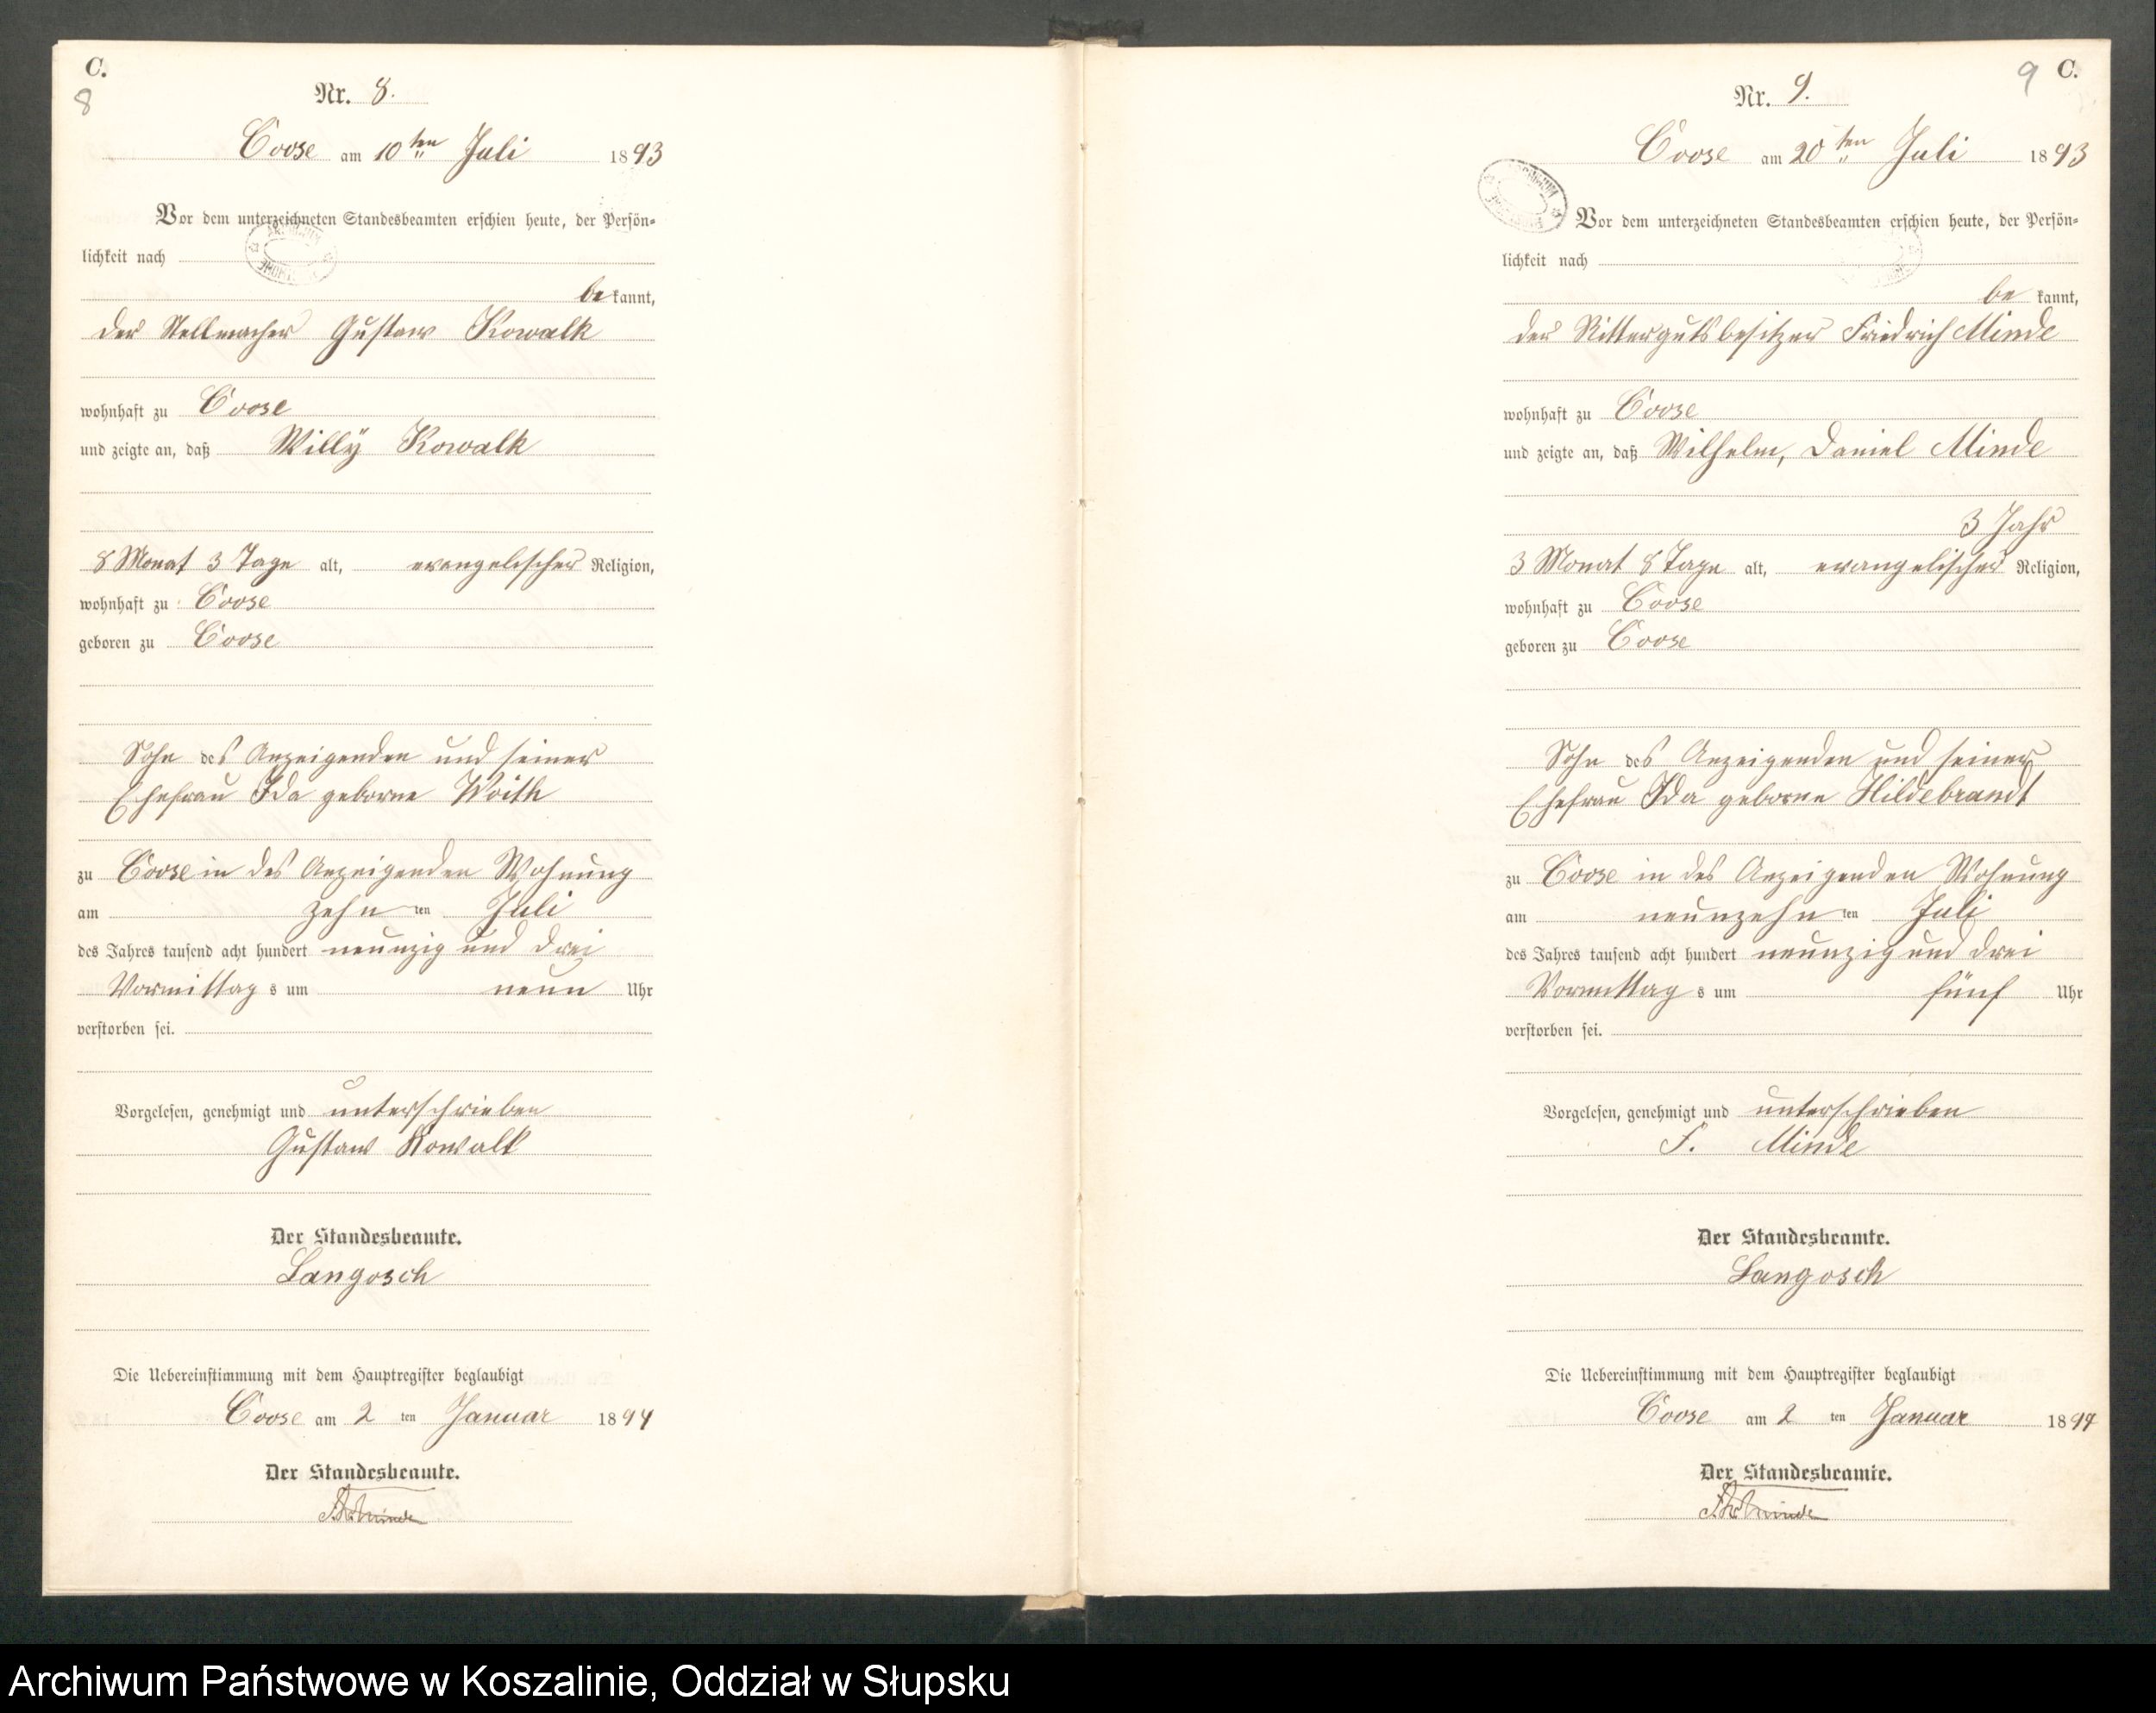 C.
8
Nr. 8.
Coose am 10ten Juli 1893
Vor dem unterzeichneten Standesbeamten erschien heute, der Persön-
lichkeit nach
bekannt,
der Stellmacher Gustav Kowalk
wohnhaft zu Coose
und zeigte an, daß Willÿ Kowalk
8 Monat 3 Tage alt, evangelischer Religion,
wohnhaft zu Coose
geboren zu Coose
Sohn des Anzeigenden und seiner
Ehefrau Ida geborne Woith
zu Coose in des Anzeigenden Wohnung
am zehn ten Juli
des Jahres tausend acht hundert neunzig und drei
Vormittags um neun Uhr
verstorben sei.
Vorgelesen, genehmigt und unterschrieben
Gustav Kowalk
Der Standesbeamte.
Langosch
Die Uebereinstimmung mit dem Hauptregister beglaubigt
Coose am 2 ten Januar 1894
Der Standesbeamte.
9 C.
Nr. 9.
Coose am 20ten Juli 1893
Vor dem unterzeichneten Standesbeamten erschien heute, der Persön-
lichkeit nach
be kannt,
der Rittergutsbesitzer Friedrich Minde
wohnhaft zu Coose
und zeigte an, daß Wilhelm, Daniel Minde
3 Jahr
3 Monat 8 Tage alt, evangelischer Religion,
wohnhaft zu Coose
geboren zu Coose
Sohn des Anzeigenden und seiner
Ehefrau Ida geborne Hildebrandt
zu Coose in des Anzeigenden Wohnung
am neunzehn ten Juli
des Jahres tausend acht hundert neunzig und drei
Vormittags um fünf Uhr
verstorben sei.
Vorgelesen, genehmigt und unterschrieben
F. Minde
Der Standesbeamte.
Langosch
Die Uebereinstimmung mit dem Hauptregister beglaubigt
Coose am 2 ten Januar 1894
Der Standesbeamte.
Archiwum Państwowe w Koszalinie, Oddział w Słupsku